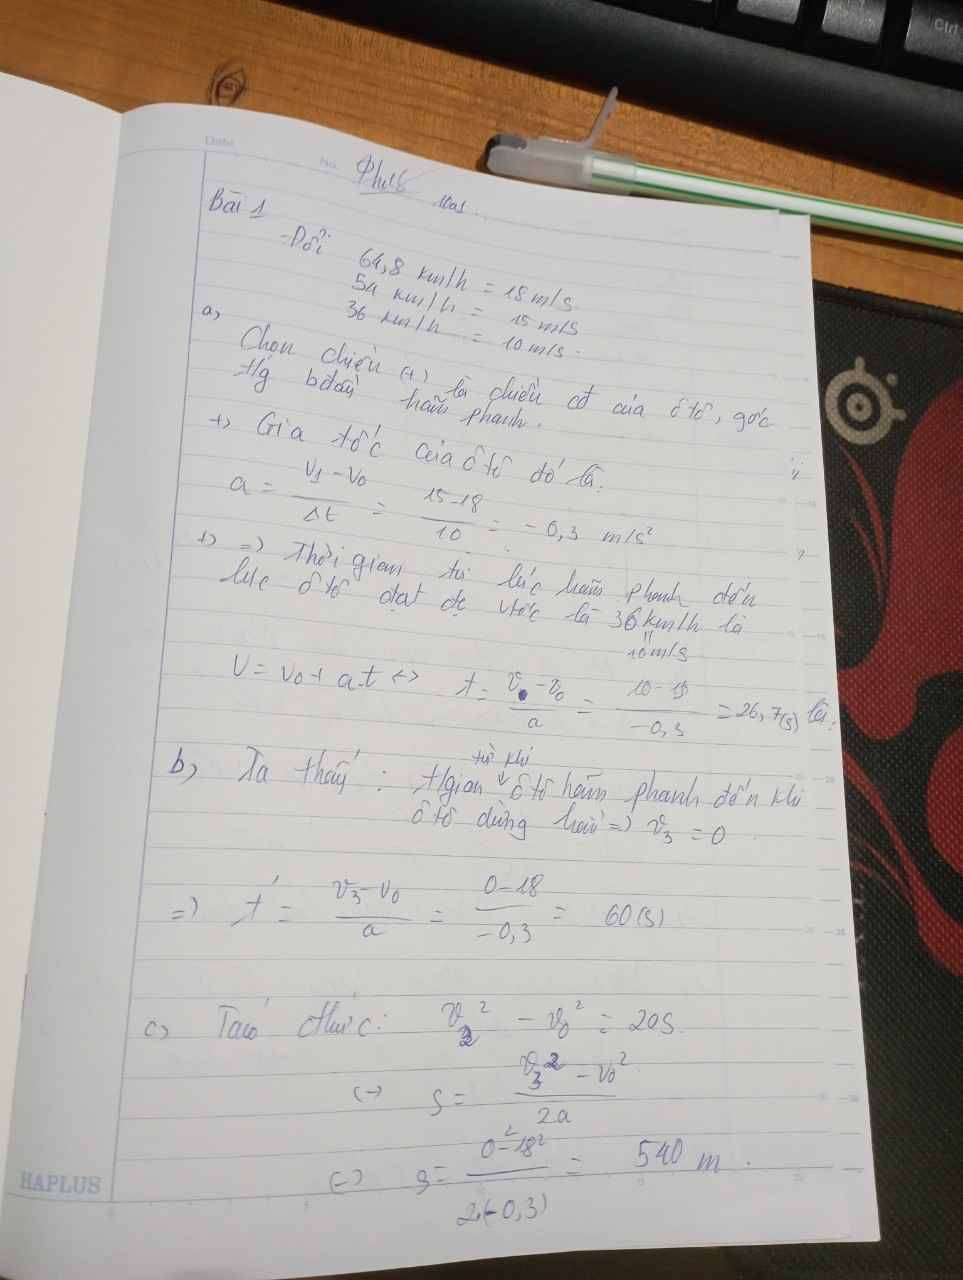 Ctrl
Date
No.
Bài 1
-Đổi 64,8 km/h = 18 m/s
54 km/h = 15 m/s
36 km/h = 10 m/s.
a,
Chọn chiều (+) là chiều cđ của ô tô, gốc
tg bđầu hãm phanh.
+) Gia tốc của ô tô đó là:
a = (v1 - v0)/Δt = (15-18)/10 = -0,3 m/s²
+) => Thời gian từ lúc hãm phanh đến
lúc ô tô đạt đc vtốc là 36 km/h là
10 m/s
V = v0 + a.t <-> t = (v - v0)/a = (10 - 18)/(-0,3) = 26,7(s)
b, Ta thấy: tgian ô tô hãm phanh đến khi
từ khi
ô tô dừng hẳn => v3 = 0
=> t' = (v3 - v0)/a = (0-18)/(-0,3) = 60(s)
c) Ta có cthức: v3² - v0² = 2as
(->) s = (v3² - v0²)/2a
(->) s = (0² - 18²)/2.(-0,3) = 540 m.
HAPLUS